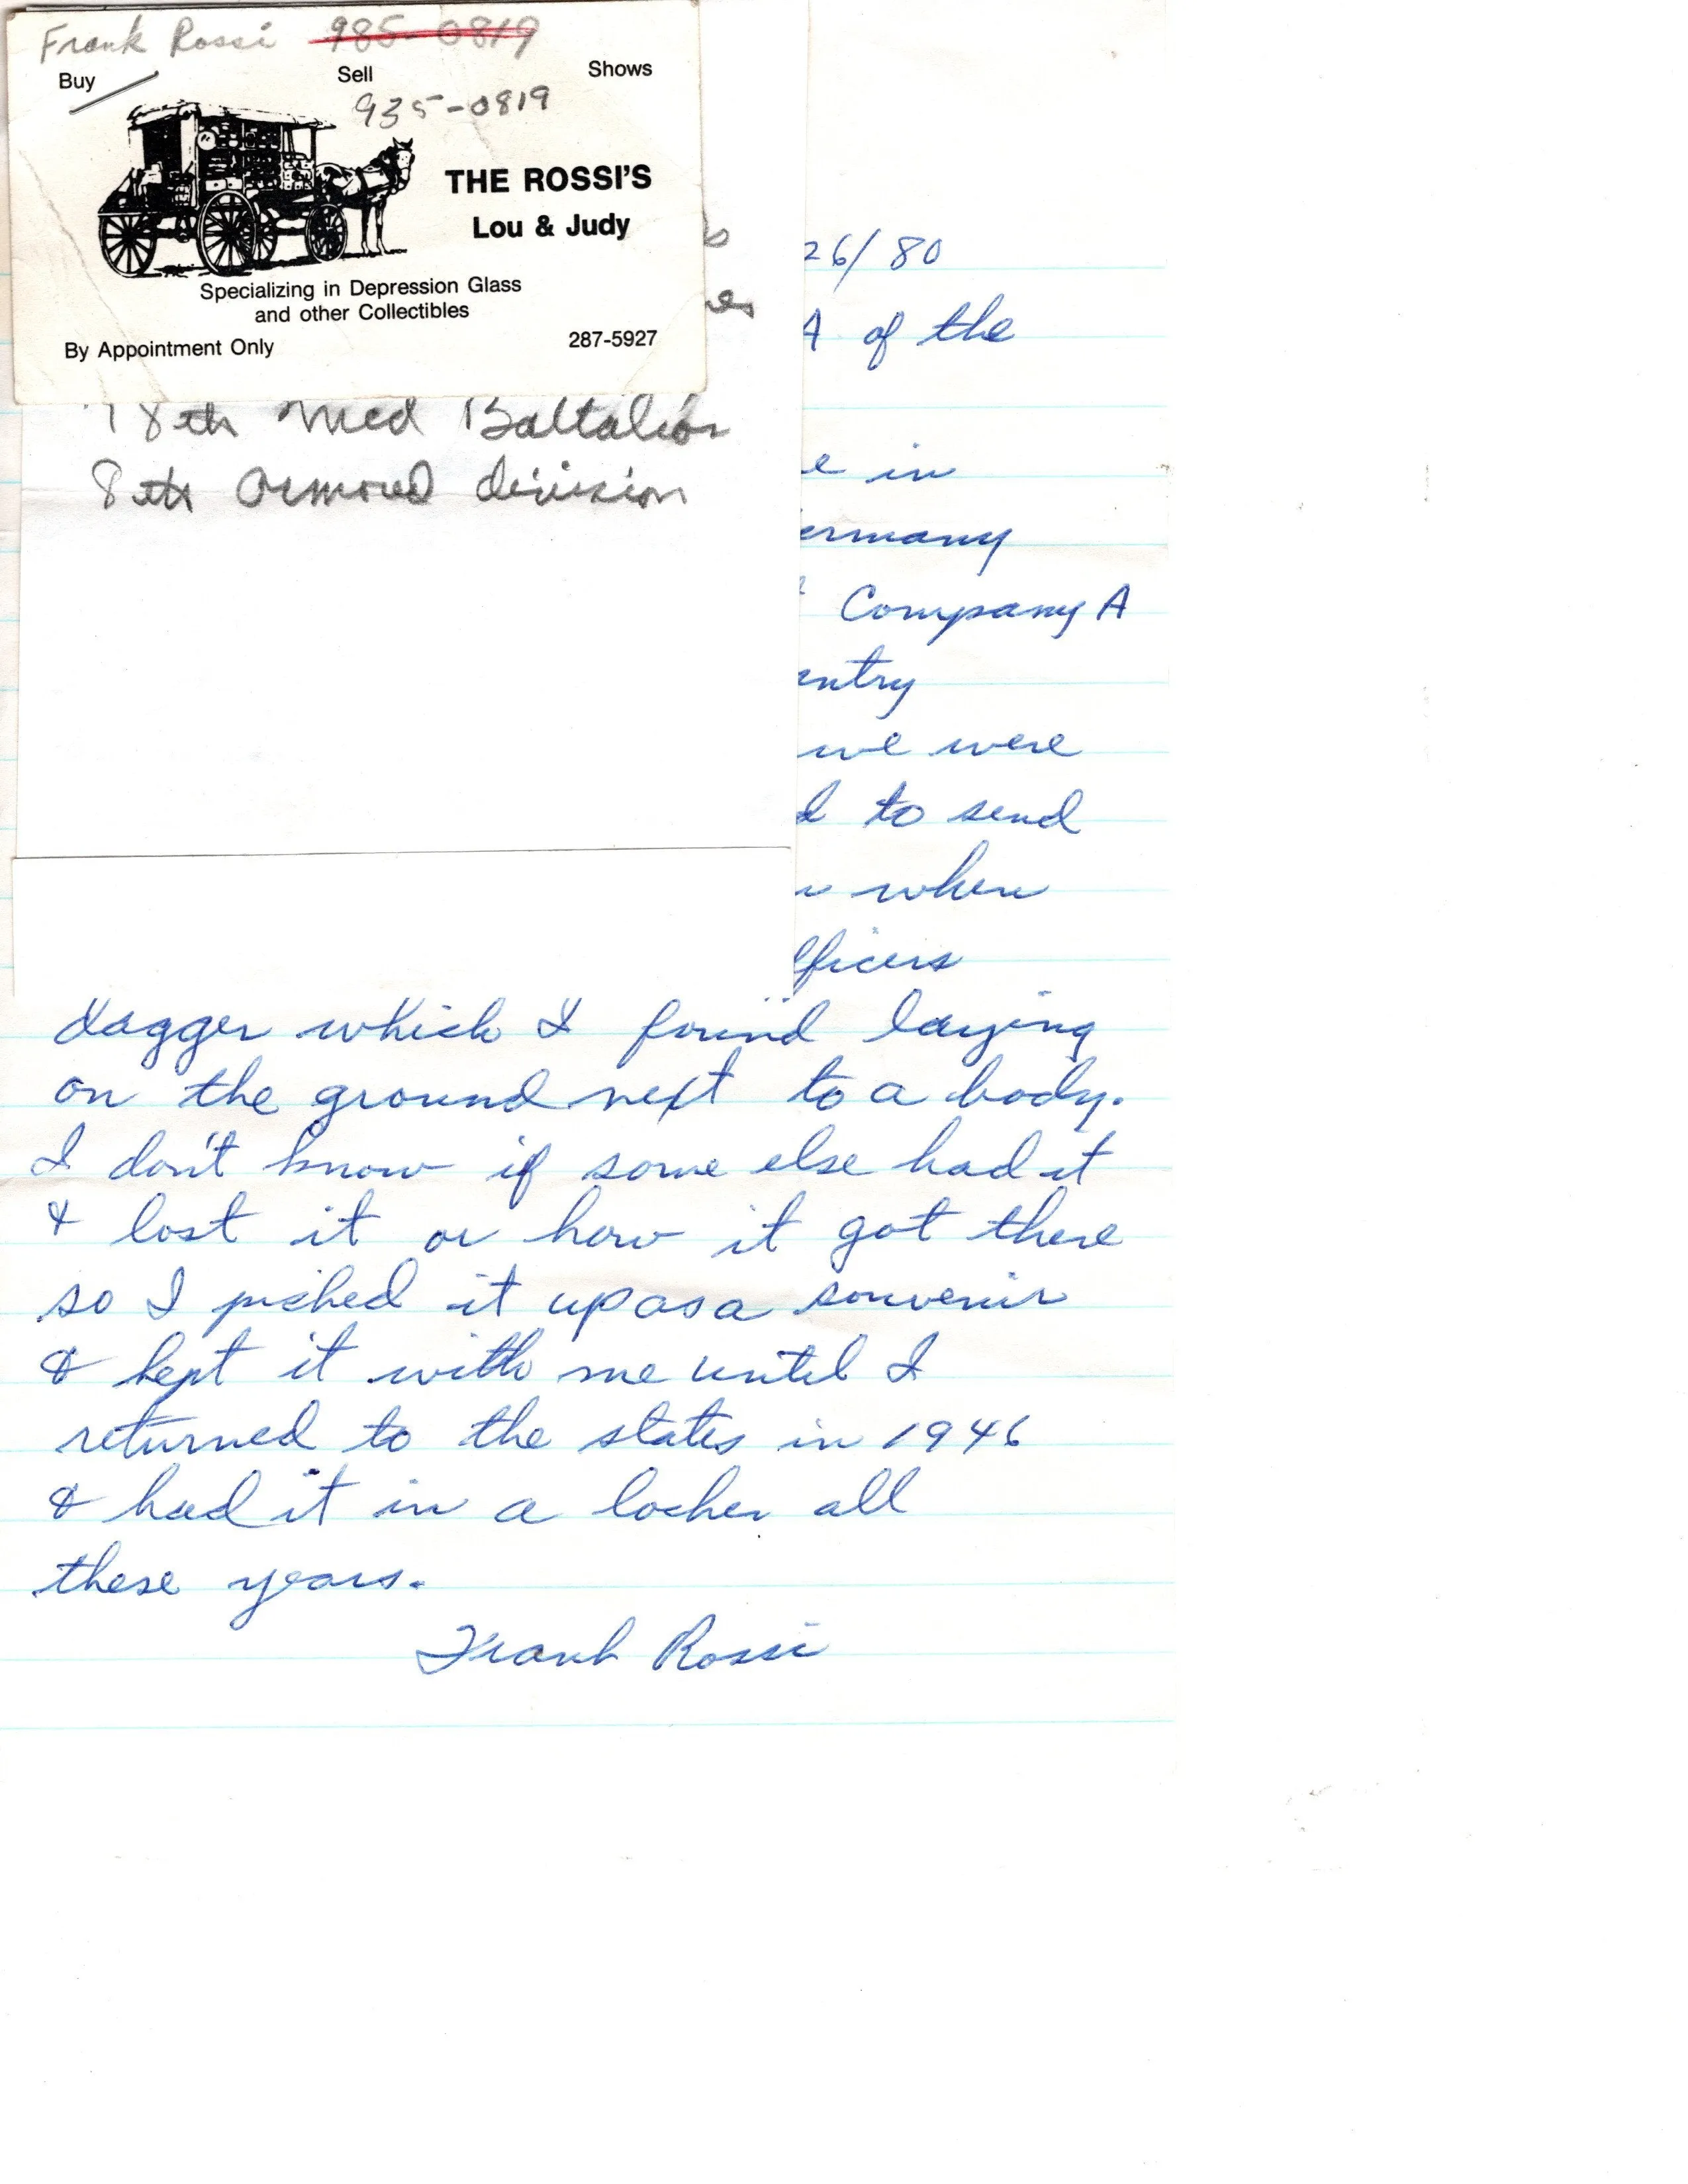 Frank Rossi 985-0819
Buy Sell Shows
935-0819
THE ROSSI'S
Lou & Judy
Specializing in Depression Glass
and other Collectibles
By Appointment Only 287-5927
78th Med Battalion
8th Ormored division
26/80
A of the
in
Company A
we were
to send
when
dagger which I found laying
on the ground next to a body.
I don't know if some else had it
& lost it or how it got there
so I picked it up as a souvenir
& kept it with me until I
returned to the states in 1946
& had it in a locker all
these years.
Frank Rossi